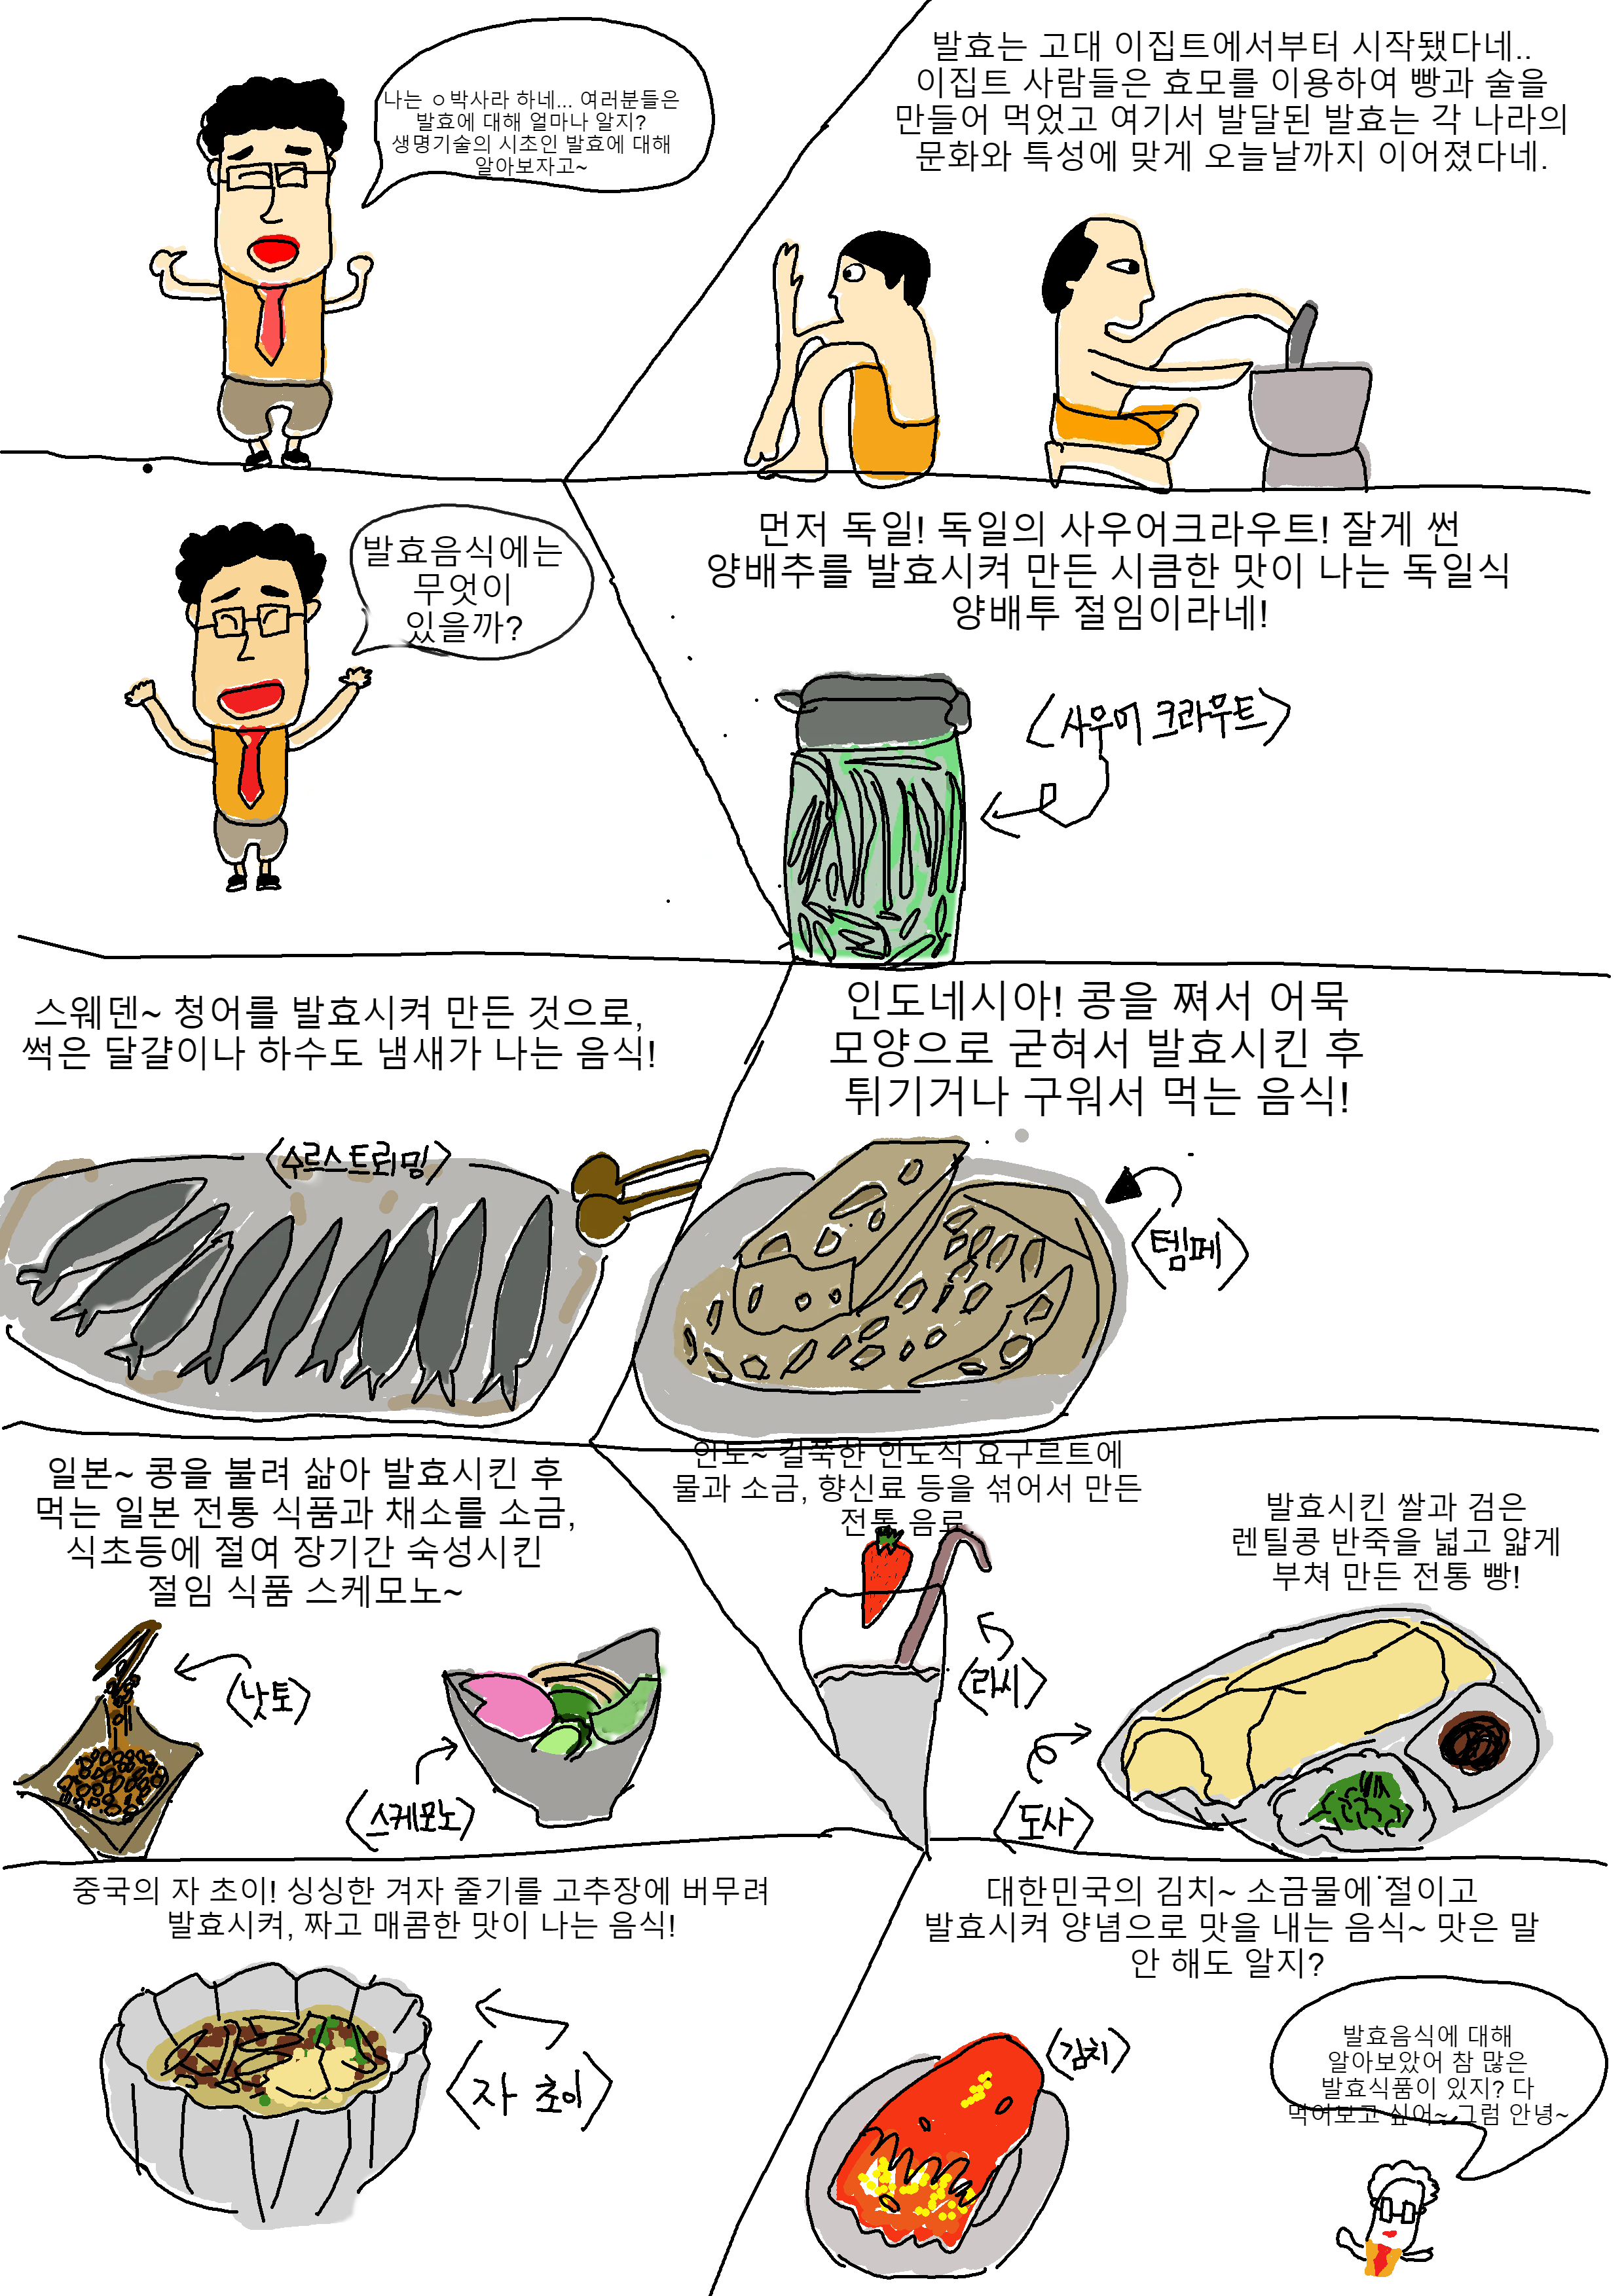 나는 ㅇ박사라 하네... 여러분들은
발효에 대해 얼마나 알지?
생명기술의 시초인 발효에 대해
알아보자고~
발효는 고대 이집트에서부터 시작됐다네..
이집트 사람들은 효모를 이용하여 빵과 술을
만들어 먹었고 여기서 발달된 발효는 각 나라의
문화와 특성에 맞게 오늘날까지 이어졌다네.
발효음식에는
무엇이
있을까?
먼저 독일! 독일의 사우어크라우트! 잘게 썬
양배추를 발효시켜 만든 시큼한 맛이 나는 독일식
양배투 절임이라네!
<사우어 크라우트>
스웨덴~ 청어를 발효시켜 만든 것으로,
썩은 달걀이나 하수도 냄새가 나는 음식!
<수르스트뢰밍>
인도네시아! 콩을 쪄서 어묵
모양으로 굳혀서 발효시킨 후
튀기거나 구워서 먹는 음식!
<템페>
일본~ 콩을 불려 삶아 발효시킨 후
먹는 일본 전통 식품과 채소를 소금,
식초등에 절여 장기간 숙성시킨
절임 식품 스케모노~
<낫토>
<스케모노>
인도~ 걸쭉한 인도식 요구르트에
물과 소금, 향신료 등을 섞어서 만든
전통 음료.
<라시>
발효시킨 쌀과 검은
렌틸콩 반죽을 넓고 얇게
부쳐 만든 전통 빵!
<도사>
중국의 자 초이! 싱싱한 겨자 줄기를 고추장에 버무려
발효시켜, 짜고 매콤한 맛이 나는 음식!
<자 초이>
대한민국의 김치~ 소금물에 절이고
발효시켜 양념으로 맛을 내는 음식~ 맛은 말
안 해도 알지?
<김치>
발효음식에 대해
알아보았어 참 많은
발효식품이 있지? 다
먹어보고 싶어~ 그럼 안녕~